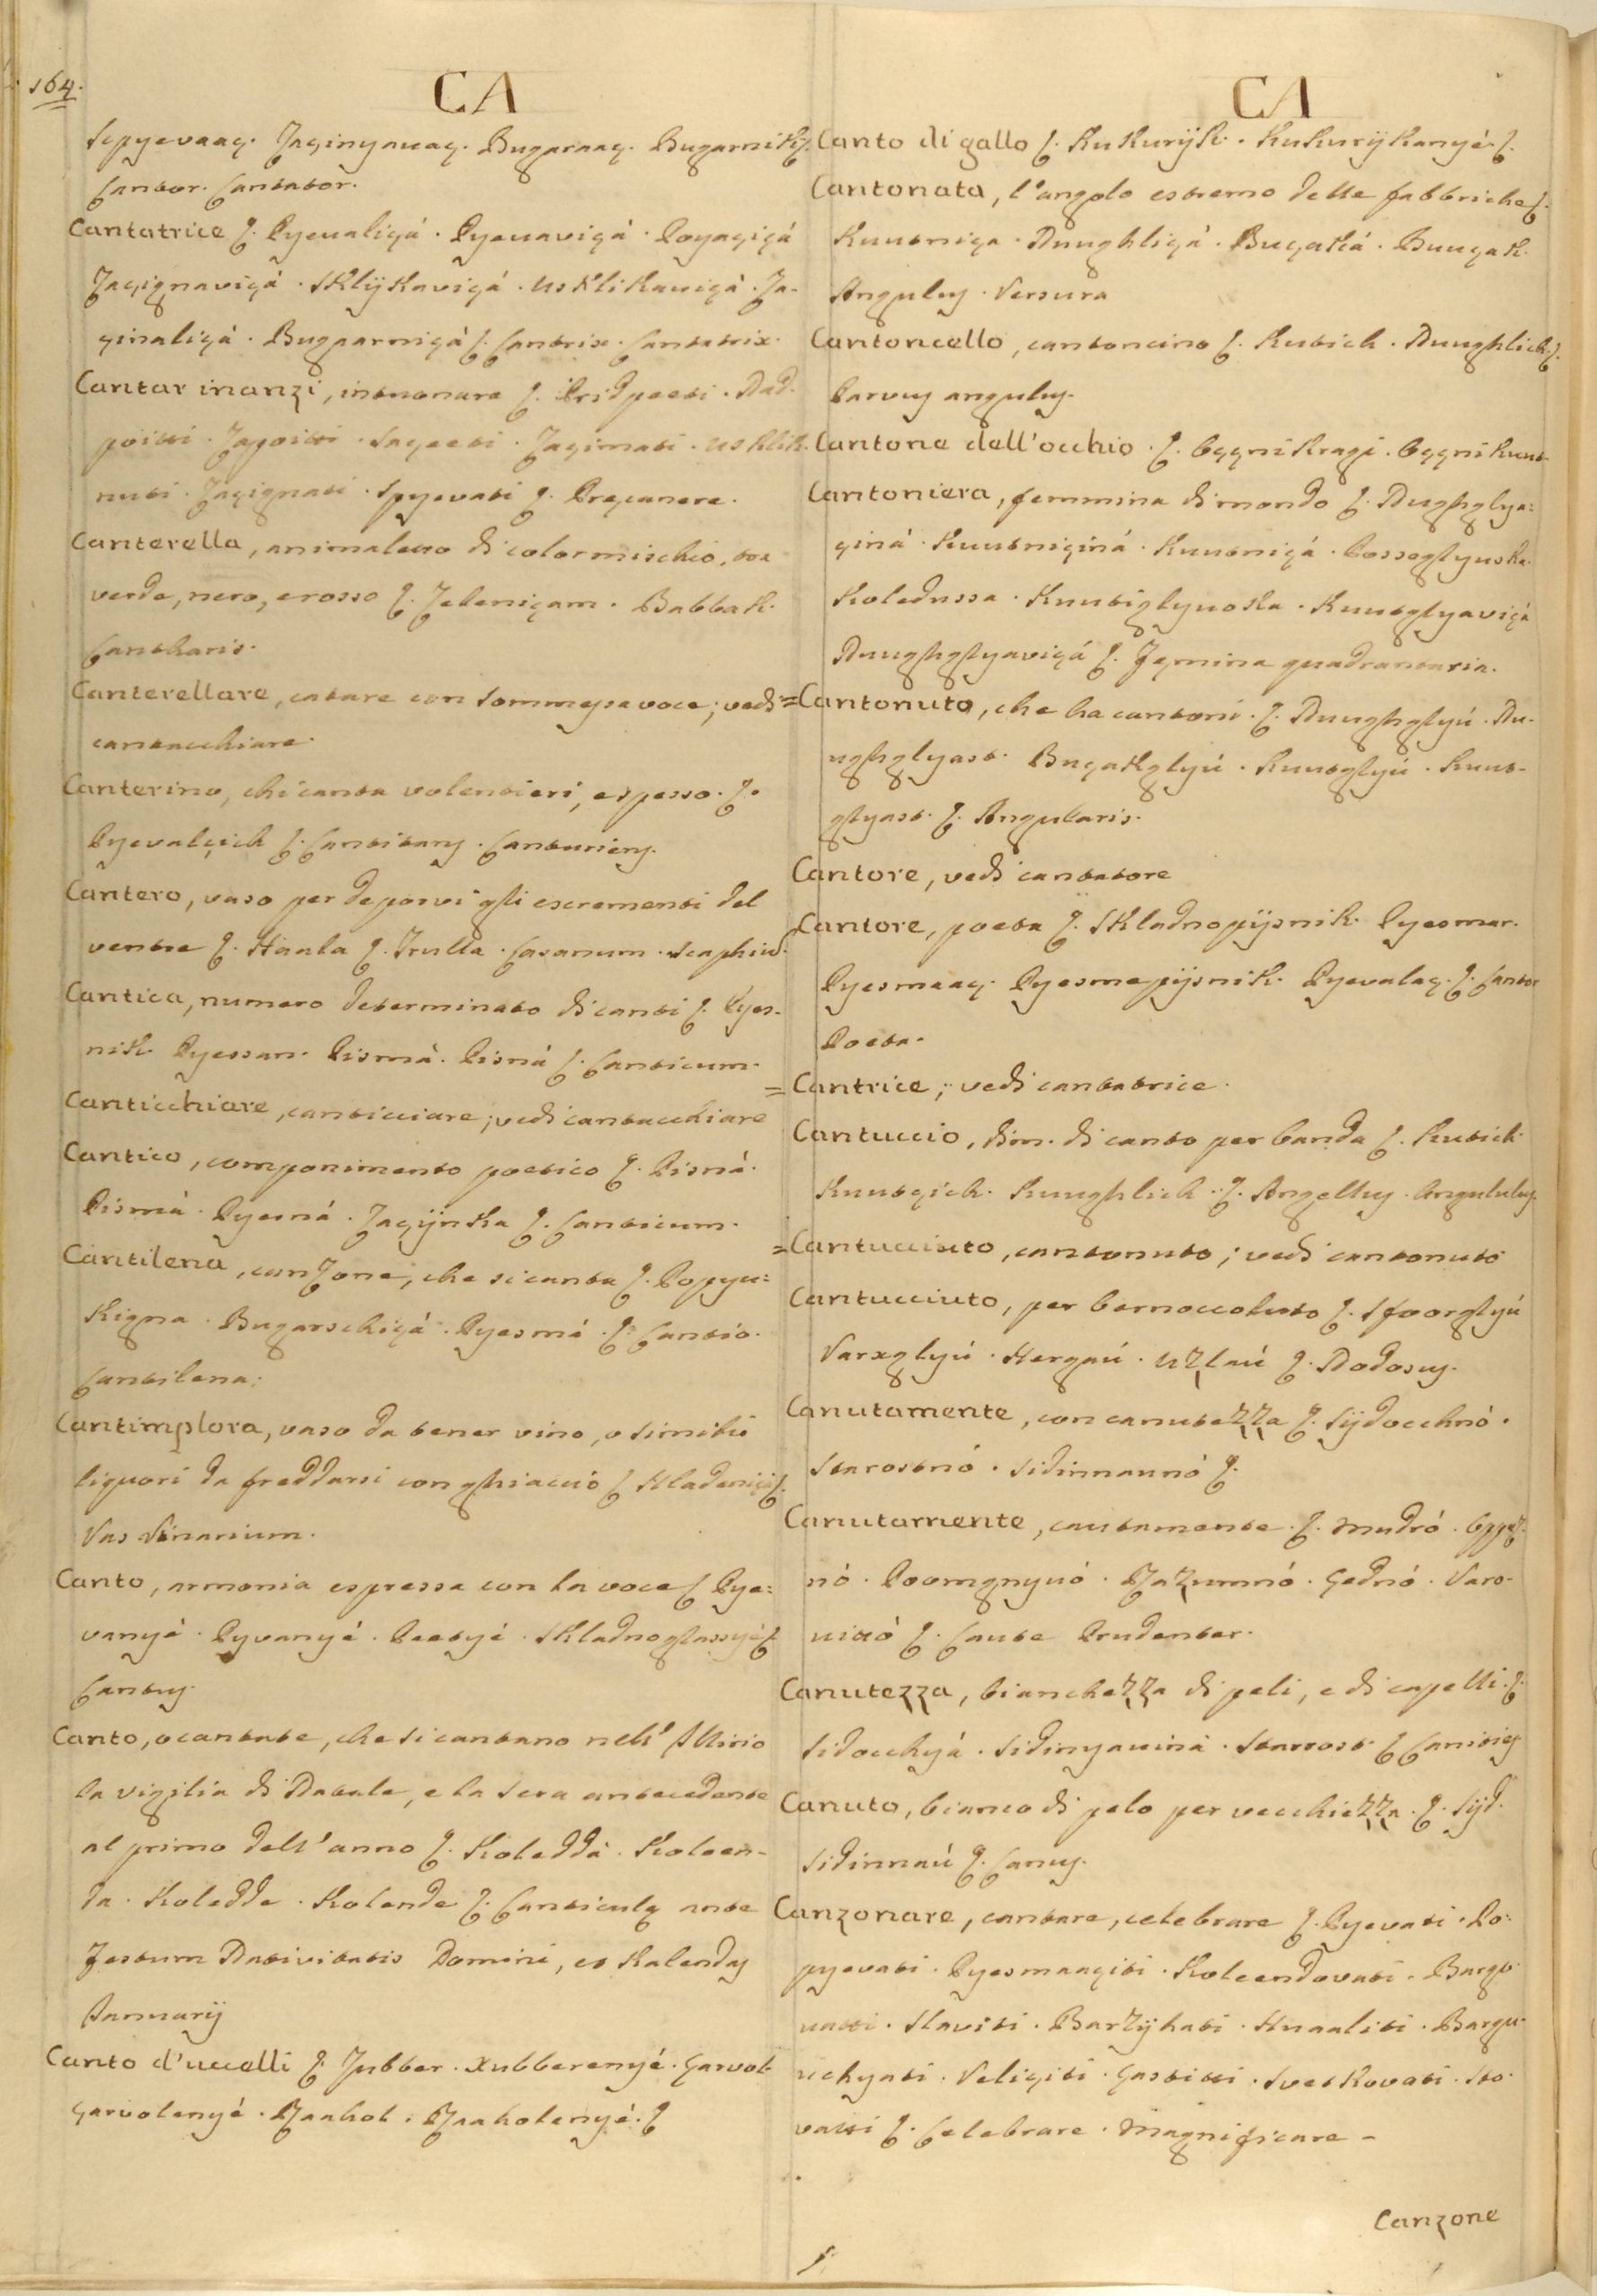 164.
CA
Spyevaaç. Zaçinyavaç. Bugaraaç. Bugarnik ſ.
Cantor. Cantator.
Cantatrice ſ. Pyevaliçá. Pyevaviçá. Poyaçiçá
Zaçignaviçá. Sklijkaviçá. Usklikaviçá. Za-
çinaliçá. Bugparniçá ſ. Cantrix. Cantatrix.
Cantar inanzi, intuonare ſ. Pridpeeti. Nad-
poitti. Zapoitti. Saçeeti. Zaçimati. Usklik-
nuti. Zaçignati. Spyevati ſ. Præcanere.
Canterella, animaletto di color mischio, tra
verde, nero, e rosso ſ. Zeleniçam. Babbak.
Cantharis.
Canterellare, catare con sommessa voce; vedi
cantacchiare.
Canterino, chi canta volentieri, e spesso. ſ.
Pyevalçich ſ. Cantitans. Canturiens.
Cantero, vaso per deporvi gli escrementi del
ventre ſ. Haala ſ. Trulla. Casanum. Scaphiũ.
Cantica, numero determinato di canti ſ. Pyes-
nik. Pyessan. Pismá. Pisná ſ. Canticum.
Canticchiare, canticciare; vedi cantacchiare
Cantico, componimento poetico ſ. Pisná.
Pismá. Pyesná. Zaçijnka ſ. Canticum.
Cantilena, canzone, che si canta ſ. Popyu=
kigna. Bugarschiçá. Pyesmá. ſ. Cantio.
Cantilena.
Cantimplora, vaso da tener vino, o simili
liquori da freddarsi con ghiaccio ſ. Hladeniçi ſ.
Vas Vinarium.
Canto, armonia espressa con la voce ſ. Pye=
vanyé. Pyvanyé. Peetyé. Skladnoglassyé ſ.
Cantus.
Canto, o cantate, che si cantano nell' Illirio
la vigilia di Natale, e la sera antecedente
al primo dell' anno ſ. Koleddá. Koleen-
da. Koledde. Kolende ſ. Canticulæ ante
Festum Nativitatis Domini, et Kalendas
Januarij
Canto d'uccelli ſ. Zubber. Xubberenyé. Garvol.
Garvolenyé. Maahol. Maaholenyé. ſ.
CA
Canto di gallo ſ. Kukurijk. Kukurijkanyé. ſ.
Cantonata, l'angolo estremo delle fabbriche ſ.
Kuutniça. Nuughliçá. Buçaká. Buuçak.
Angulus. Versura
Cantoncello, cantoncino ſ. Kutich. Nuughlich. ſ.
Parvus angulus.
Cantone dell'occhio. ſ. Oççnikragi. Oççnikuut.
Cantoniera, femmina di mondo ſ. Nughglya=
çiná. Kuutniçiná. Kuutniçá. Posseglyuska.
Koledussa. Kuutiglyuoska. Kuutglyaviçá
Nuughglyaviçá ſ. Fœmina quadrantaria.
=Cantonuto, che ha cantoni. ſ. Nuughglyú. Nu-
ughglyast. Buçakglyú. Kuutglyú. Kuut-
glyast. ſ. Angularis.
Cantore, vedi cantatore
Cantore, poeta ſ. Skladnopijsnik. Pyesmar.
Pyesmaaç. Pyesmepijsnik. Pyevalaç. ſ. Cantor
Poeta.
=Cantrice; vedi cantatrice.
Cantuccio, dim. di canto per banda ſ. Kutich
Kuutçich. Kuughlich. ſ. Angellus. Angululus.
=Cantucciuto, cantonuto; vedi cantonuto
Cantucciuto, per bernoccoluto ſ. Sfoorglyú
Varxglyú. Hergaú. Uzlaú ſ. Nodosus.
Canutamente, con canutezza ſ. Sijdocchnó.
Starostnó. Sidinnaunó ſ.
Canutamente, cautamente. ſ. Mudró. Oppaz-
nó. Poomgnyuó. Razumnó. Gednó. Varo-
vitó ſ. Caute Prudenter.
Canutezza, bianchezza di peli, e di capelli. ſ.
Sidocchyá. Sidinyaviná. Starrost ſ. Canities
Canuto, bianco di pelo per vecchiezza. ſ. Sijd.
Sidinnaú ſ. Canus.
Canzonare, cantare, celebrare ſ. Pyevati. Po-
pyevati. Pyesmaaçiti. Koleendovati. Bargo-
vatti. Slaviti. Barzijhati. Hvaaliti. Bargu-
uchyati. Veliçiti. Çastitti. Svetkovati. Sto-
vatti ſ. Celebrare. Magnificare -
Canzone